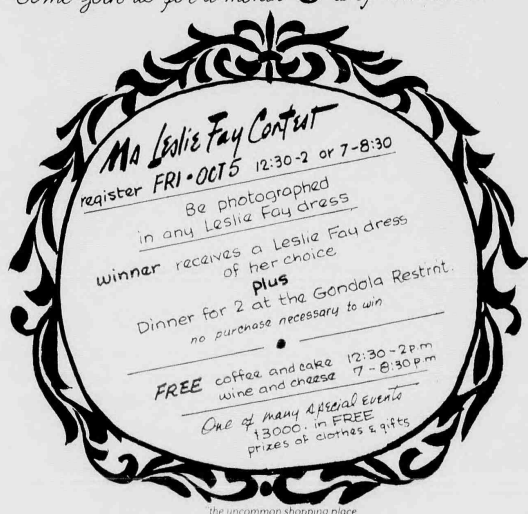 Come join us for a
Ms Leslie Fay Contest
register FRI • OCT 5 12:30-2 or 7-8:30
Be photographed
in any Leslie Fay dress
winner receives a Leslie Fay dress
of her choice
plus
Dinner for 2 at the Gondola Restrnt.
no purchase necessary to win
FREE coffee and cake 12:30-2 p.m
wine and cheese 7-8:30 p.m
One of many special events
$3000. in FREE
prizes of clothes & gifts
the uncommon shopping place